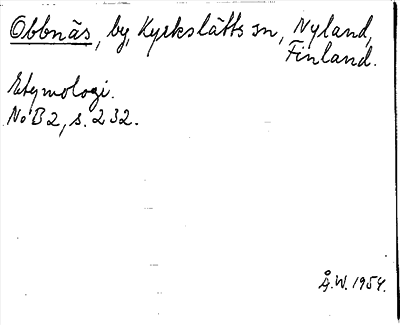 Obbnäs, by, Kyrkslätts sn, Nyland,
Finland.
Etymologi.
NoB 2, s. 232.
Å.W. 1954.